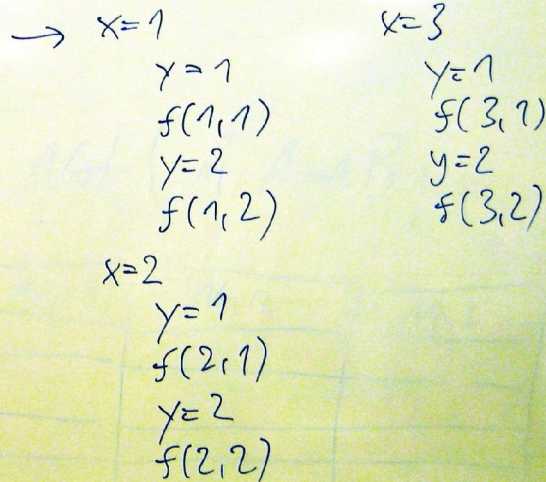 → x=1
y=1
f(1,1)
y=2
f(1,2)
x=2
y=1
f(2,1)
y=2
f(2,2)
x=3
y=1
f(3,1)
y=2
f(3,2)